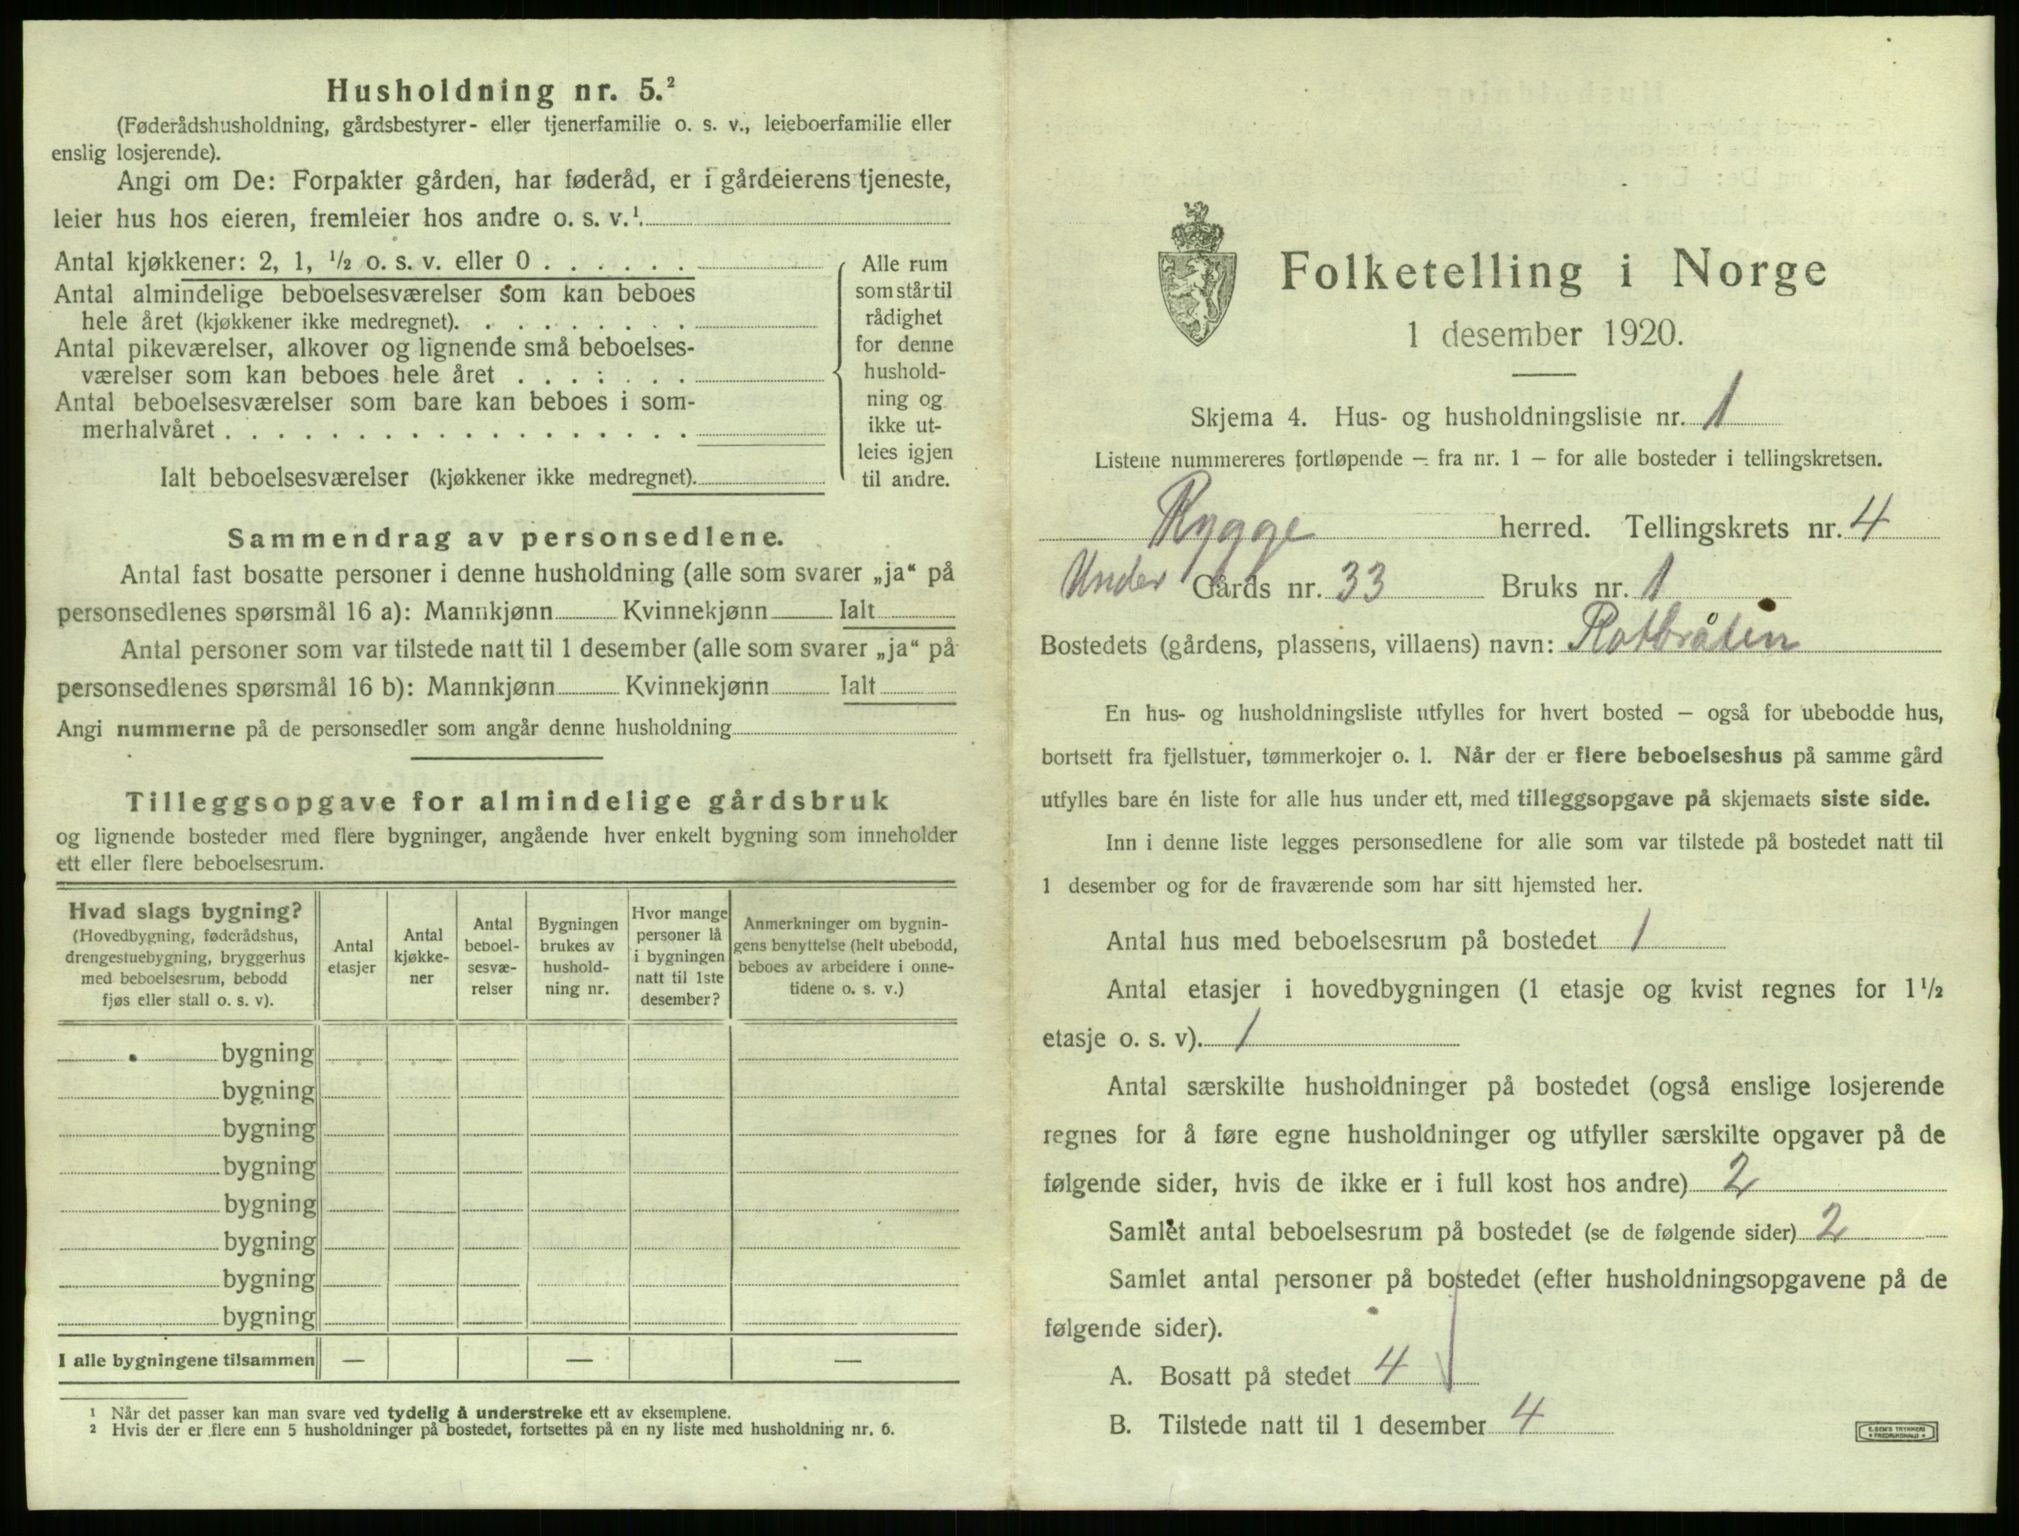 Husholdning nr. 5.²
(Føderådshusholdning, gårdsbestyrer- eller tjenerfamilie o. s. v., leieboerfamilie eller
enslig losjerende).
Angi om De: Forpakter gården, har føderåd, er i gårdeierens tjeneste,
leier hus hos eieren, fremleier hos andre o. s. v.¹.
Antal kjøkkener: 2, 1, ½ o. s. v. eller 0 . . . . . .
Antal almindelige beboelsesværelser som kan beboes
hele året (kjøkkener ikke medregnet). . . . . . . . .
Antal pikeværelser, alkover og lignende små beboelses-
værelser som kan beboes hele året . . . : . . .
Antal beboelsesværelser som bare kan beboes i som-
merhalvåret . . . . . . . . . . . . . . . . . .
Ialt beboelsesværelser (kjøkkener ikke medregnet).
Alle rum
som står til
rådighet
for denne
hushold-
ning og
ikke ut-
leies igjen
til andre.
Sammendrag av personsedlene.
Antal fast bosatte personer i denne husholdning (alle som svarer „ja“ på
personsedlenes spørsmål 16 a): Mannkjønn Kvinnekjønn Ialt
Antal personer som var tilstede natt til 1 desember (alle som svarer „ja“ på
personsedlenes spørsmål 16 b): Mannkjønn Kvinnekjønn Ialt
Angi nummerne på de personsedler som angår denne husholdning
Tilleggsopgave for almindelige gårdsbruk
og lignende bosteder med flere bygninger, angående hver enkelt bygning som inneholder
ett eller flere beboelsesrum.
Hvad slags bygning?
(Hovedbygning, føderådshus,
drengestuebygning, bryggerhus
med beboelsesrum, bebodd
fjøs eller stall o. s. v).
Antal
etasjer
Antal
kjøkke-
ner
Antal
beboel-
sesvæ-
relser
Bygningen
brukes av
hushold-
ning nr.
Hvor mange
personer lå
i bygningen
natt til 1ste
desember?
Anmerkninger om bygnin-
gens benyttelse (helt ubebodd,
beboes av arbeidere i onne-
tidene o. s. v.)
bygning
bygning
bygning
bygning
bygning
bygning
bygning
bygning
I alle bygningene tilsammen — — —
¹ Når det passer kan man svare ved tydelig å understreke ett av eksemplene.
² Hvis der er flere enn 5 husholdninger på bostedet, fortsettes på en ny liste med husholdning nr. 6.
Folketelling i Norge
1 desember 1920.
Skjema 4. Hus- og husholdningsliste nr. 1
Listene nummereres fortløpende — fra nr. 1 — for alle bosteder i tellingskretsen.
Rygge herred. Tellingskrets nr. 4
Under Gårds nr. 33 Bruks nr. 1
Bostedets (gårdens, plassens, villaens) navn: Rotbråten
En hus- og husholdningsliste utfylles for hvert bosted — også for ubebodde hus,
bortsett fra fjellstuer, tømmerkojer o. l. Når der er flere beboelseshus på samme gård
utfylles bare én liste for alle hus under ett, med tilleggsopgave på skjemaets siste side.
Inn i denne liste legges personsedlene for alle som var tilstede på bostedet natt til
1 desember og for de fraværende som har sitt hjemsted her.
Antal hus med beboelsesrum på bostedet 1
Antal etasjer i hovedbygningen (1 etasje og kvist regnes for 1½
etasje o. s. v). 1
Antal særskilte husholdninger på bostedet (også enslige losjerende
regnes for å føre egne husholdninger og utfyller særskilte opgaver på de
følgende sider, hvis de ikke er i full kost hos andre) 2
Samlet antal beboelsesrum på bostedet (se de følgende sider) 2
Samlet antal personer på bostedet (efter husholdningsopgavene på de
følgende sider).
A. Bosatt på stedet 4
B. Tilstede natt til 1 desember 4
E. SEM'S TRYKKERI
FREDRIKSHALD